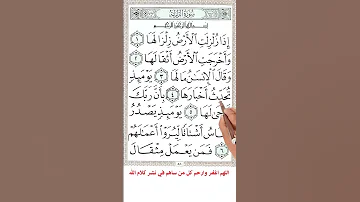 سُورَةُ الزَّلْزَلَةِ
بِسْمِ ٱللَّهِ ٱلرَّحْمَٰنِ ٱلرَّحِيمِ
إِذَا زُلْزِلَتِ ٱلْأَرْضُ زِلْزَالَهَا ١
وَأَخْرَجَتِ ٱلْأَرْضُ أَثْقَالَهَا ٢
وَقَالَ ٱلْإِنسَٰنُ مَا لَهَا ٣ يَوْمَئِذٍ
تُحَدِّثُ أَخْبَارَهَا ٤ بِأَنَّ رَبَّكَ
حَىٰ لَهَا ٥ يَوْمَئِذٍ يَصْدُرُ
اسُ أَشْتَاتًا لِّيُرَوْا أَعْمَٰلَهُمْ
٦ فَمَن يَعْمَلْ مِثْقَالَ
اللهم اغفر وارحم كل من ساهم في نشر كلام الله